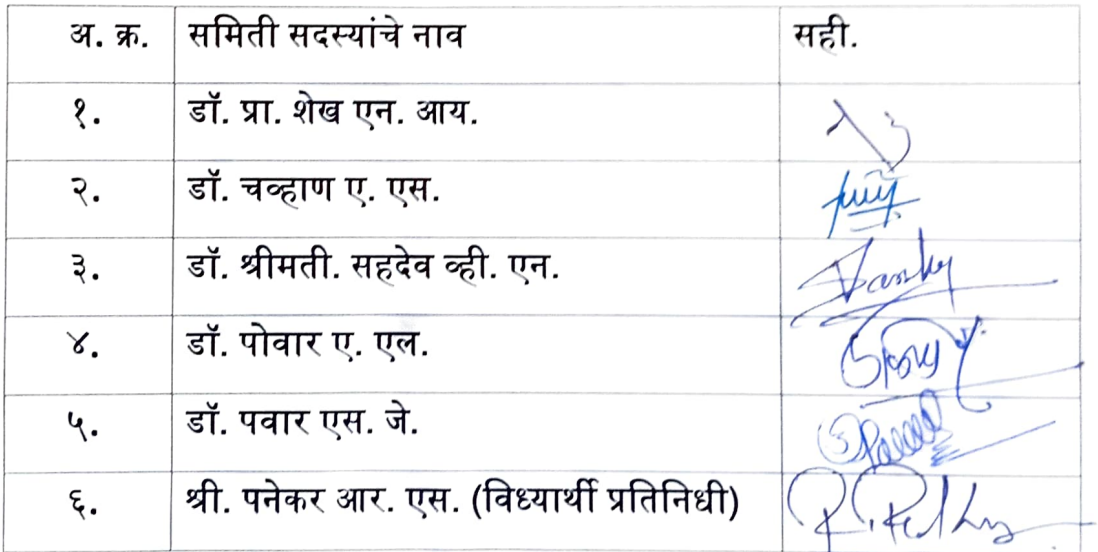 अ. क्र. समिती सदस्यांचे नाव सही.
१. डॉ. प्रा. शेख एन. आय.
२. डॉ. चव्हाण ए. एस.
३. डॉ. श्रीमती. सहदेव व्ही. एन.
४. डॉ. पोवार ए. एल.
५. डॉ. पवार एस. जे.
६. श्री. पनेकर आर. एस. (विध्यार्थी प्रतिनिधी)